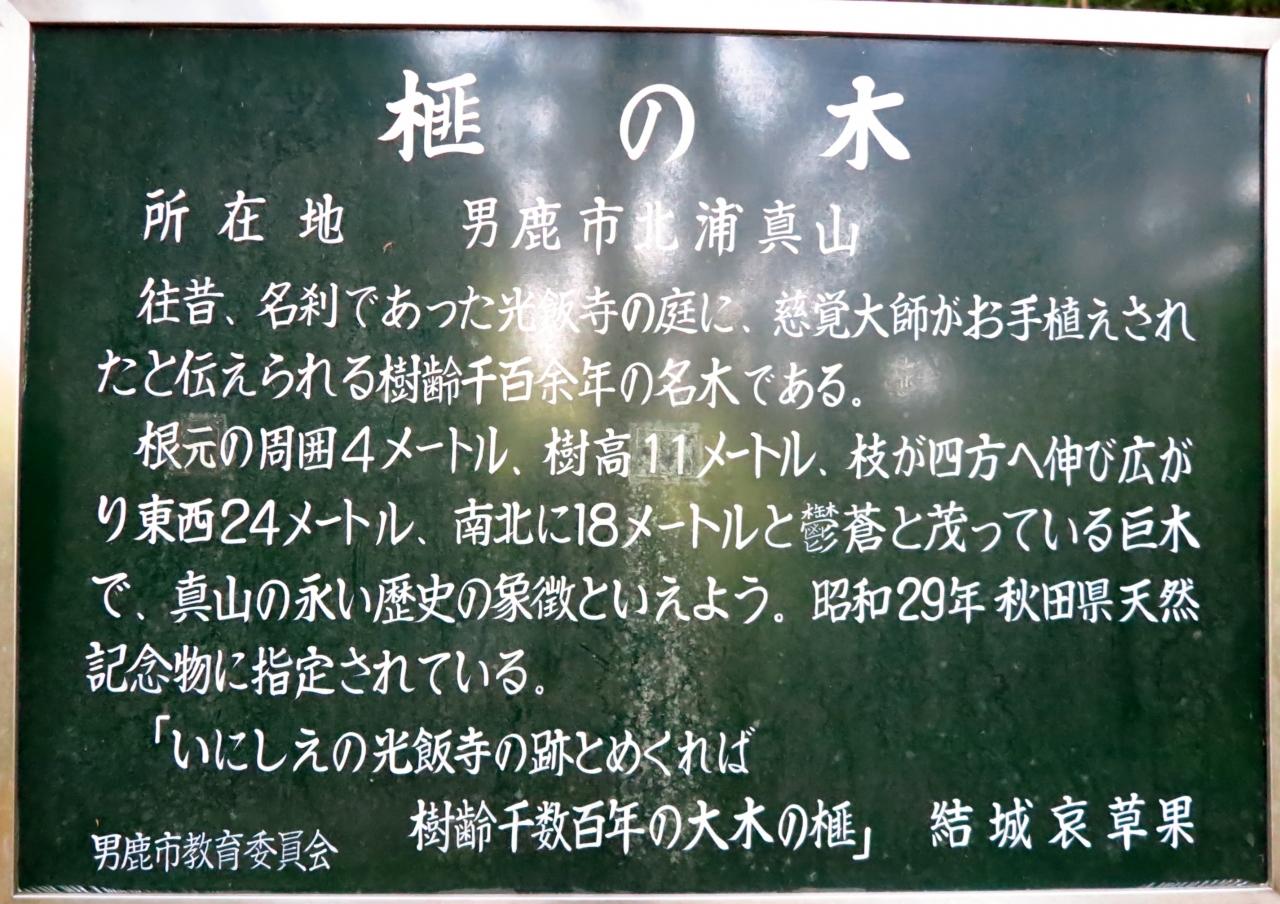 榧の木
所在地　男鹿市北浦真山
往昔、名刹であった光飯寺の庭に、慈覚大師がお手植えされ
たと伝えられる樹齢千百余年の名木である。
根元の周囲4メートル、樹高11メートル、枝が四方へ伸び広が
り東西24メートル、南北に18メートルと鬱蒼と茂っている巨木
で、真山の永い歴史の象徴といえよう。昭和29年秋田県天然
記念物に指定されている。
「いにしえの光飯寺の跡とめくれば
樹齢千数百年の大木の榧」　結城哀草果
男鹿市教育委員会